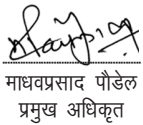 माधवप्रसाद पौडेल
प्रमुख अधिकृत